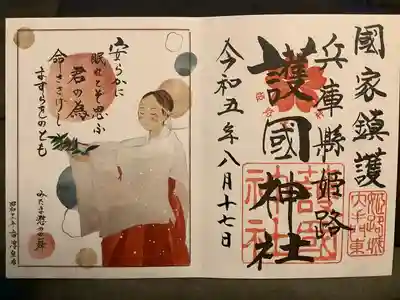 國家鎮護
兵庫縣姫路
護國神社
令和五年八月十七日
護國
神社
姫路城
大手前東
安らかに
眠れとぞ思ふ
君の為
命ささげし
ますらをのとも
みたま慰の舞